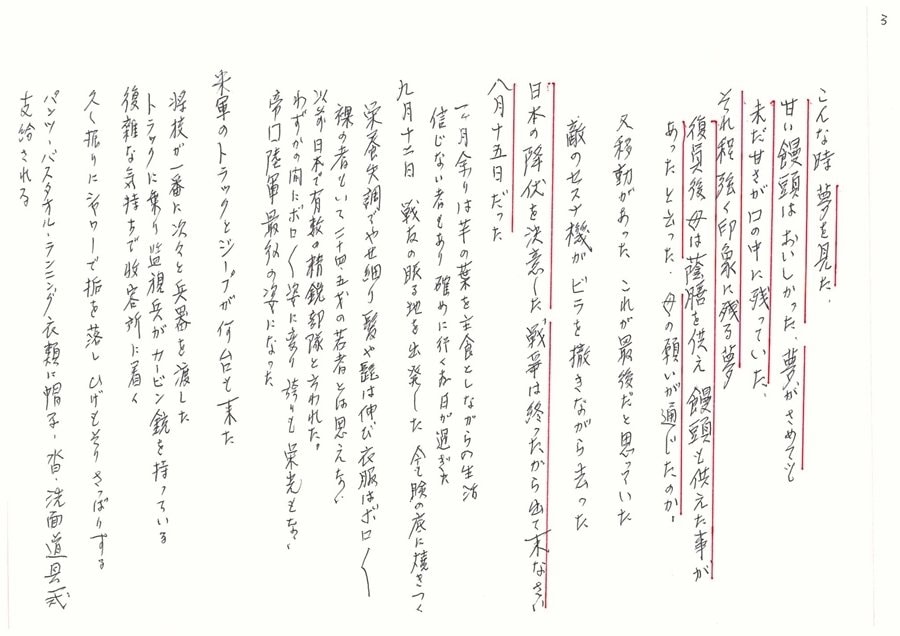 3
こんな時 夢を見た.
甘い饅頭はおいしかった. 夢がさめても
未だ甘さが口の中に残っていた.
それ程強く印象に残る夢
復員後 母は蔭膳を供え 饅頭も供えた事が
あったと云った. 母の願いが通じたのか.
又移動があった これが最後だと思っていた
敵のセスナ機がビラを撒きながら去った
日本の降伏を決意した 戦争は終ったから出て来なさい
八月十五日だった
一ヶ月余りは芋の葉を主食としながらの生活
信じない者もあり確めに行くあ日が過ぎた
九月十二日 戦友の眠る地を出発した 今も瞼の底に焼きつく
栄養失調でやせ細り髪や髭は伸び衣服はボロ〱
裸の者もいて二十四・五才の若者とは思えない
以前日本で有数の精鋭部隊と云われた.
わずかの間にボロ〱姿に変り 誇りも栄光もない
帝口陸軍最后の姿になった
米軍のトラックとジープが何台も来た
将校が一番に次々と兵器を渡した
トラックに乗り監視兵がカービン銃を持っている
復雑な気持ちで収容所に着く
久し振りにシャワーで垢を落し ひげもそりさっぱりする
パンツ・バスタオル・ランニング・衣類に帽子・沓・洗面道具一式
支給される